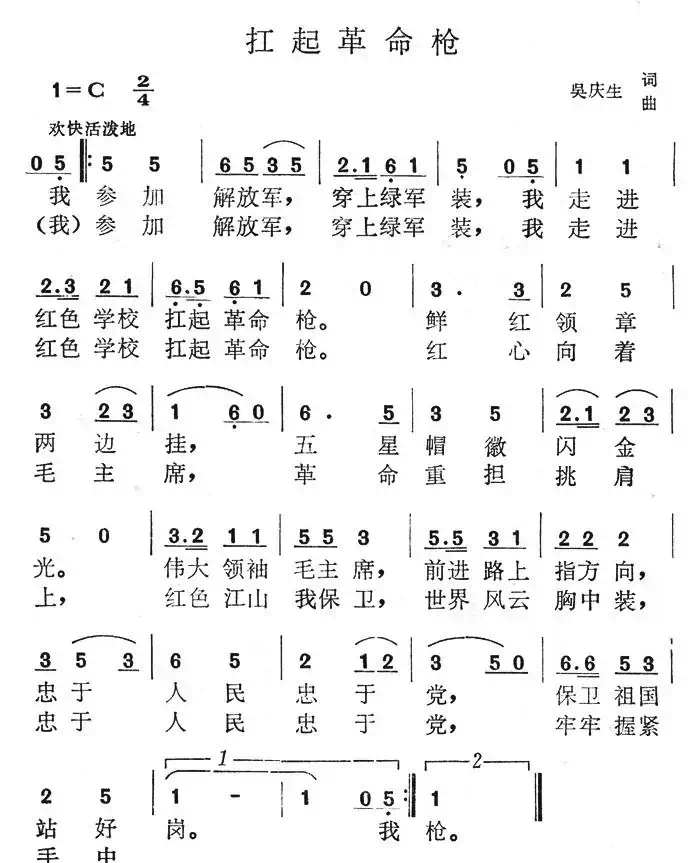 扛起革命枪
1=C 2/4
吴庆生 词曲
欢快活泼地
0 5 ‖: 5 5 | 6 5 3 5 | 2.1 6 1 | 5 0 5 | 1 1
我 参加 解放军, 穿上绿军 装, 我 走进
(我) 参加 解放军, 穿上绿军 装, 我 走进
2.3 2 1 | 6.5 6 1 | 2 0 | 3. 3 | 2 5
红色 学校 扛起 革命 枪。 鲜 红 领 章
红色 学校 扛起 革命 枪。 红 心 向 着
3 2 3 | 1 6 0 | 6. 5 | 3 5 | 2.1 2 3
两 边 挂, 五 星 帽 徽 闪 金
毛 主 席, 革 命 重 担 挑 肩
5 0 | 3.2 1 1 | 5 5 3 | 5.5 3 1 | 2 2 2
光。 伟大 领袖 毛主 席, 前进 路上 指方 向,
上, 红色 江山 我保 卫, 世界 风云 胸中 装,
3 5 3 | 6 5 | 2 1 2 | 3 5 0 | 6.6 5 3
忠 于 人 民 忠 于 党, 保卫 祖国
忠 于 人 民 忠 于 党, 牢牢 握紧
1 2
2 5 | 1 - | 1 0 5 :‖ 1 ‖
站 好 岗。 我 枪。
手 中